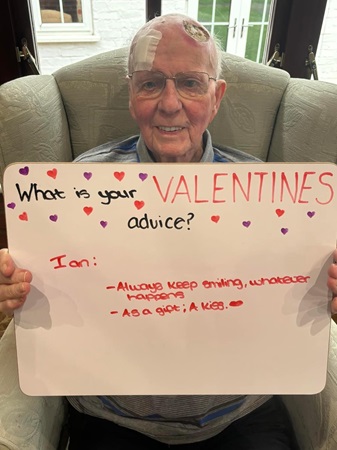 What is your VALENTINES
advice?
Ian:
- Always keep smiling, whatever
happens
- As a gift; A kiss.